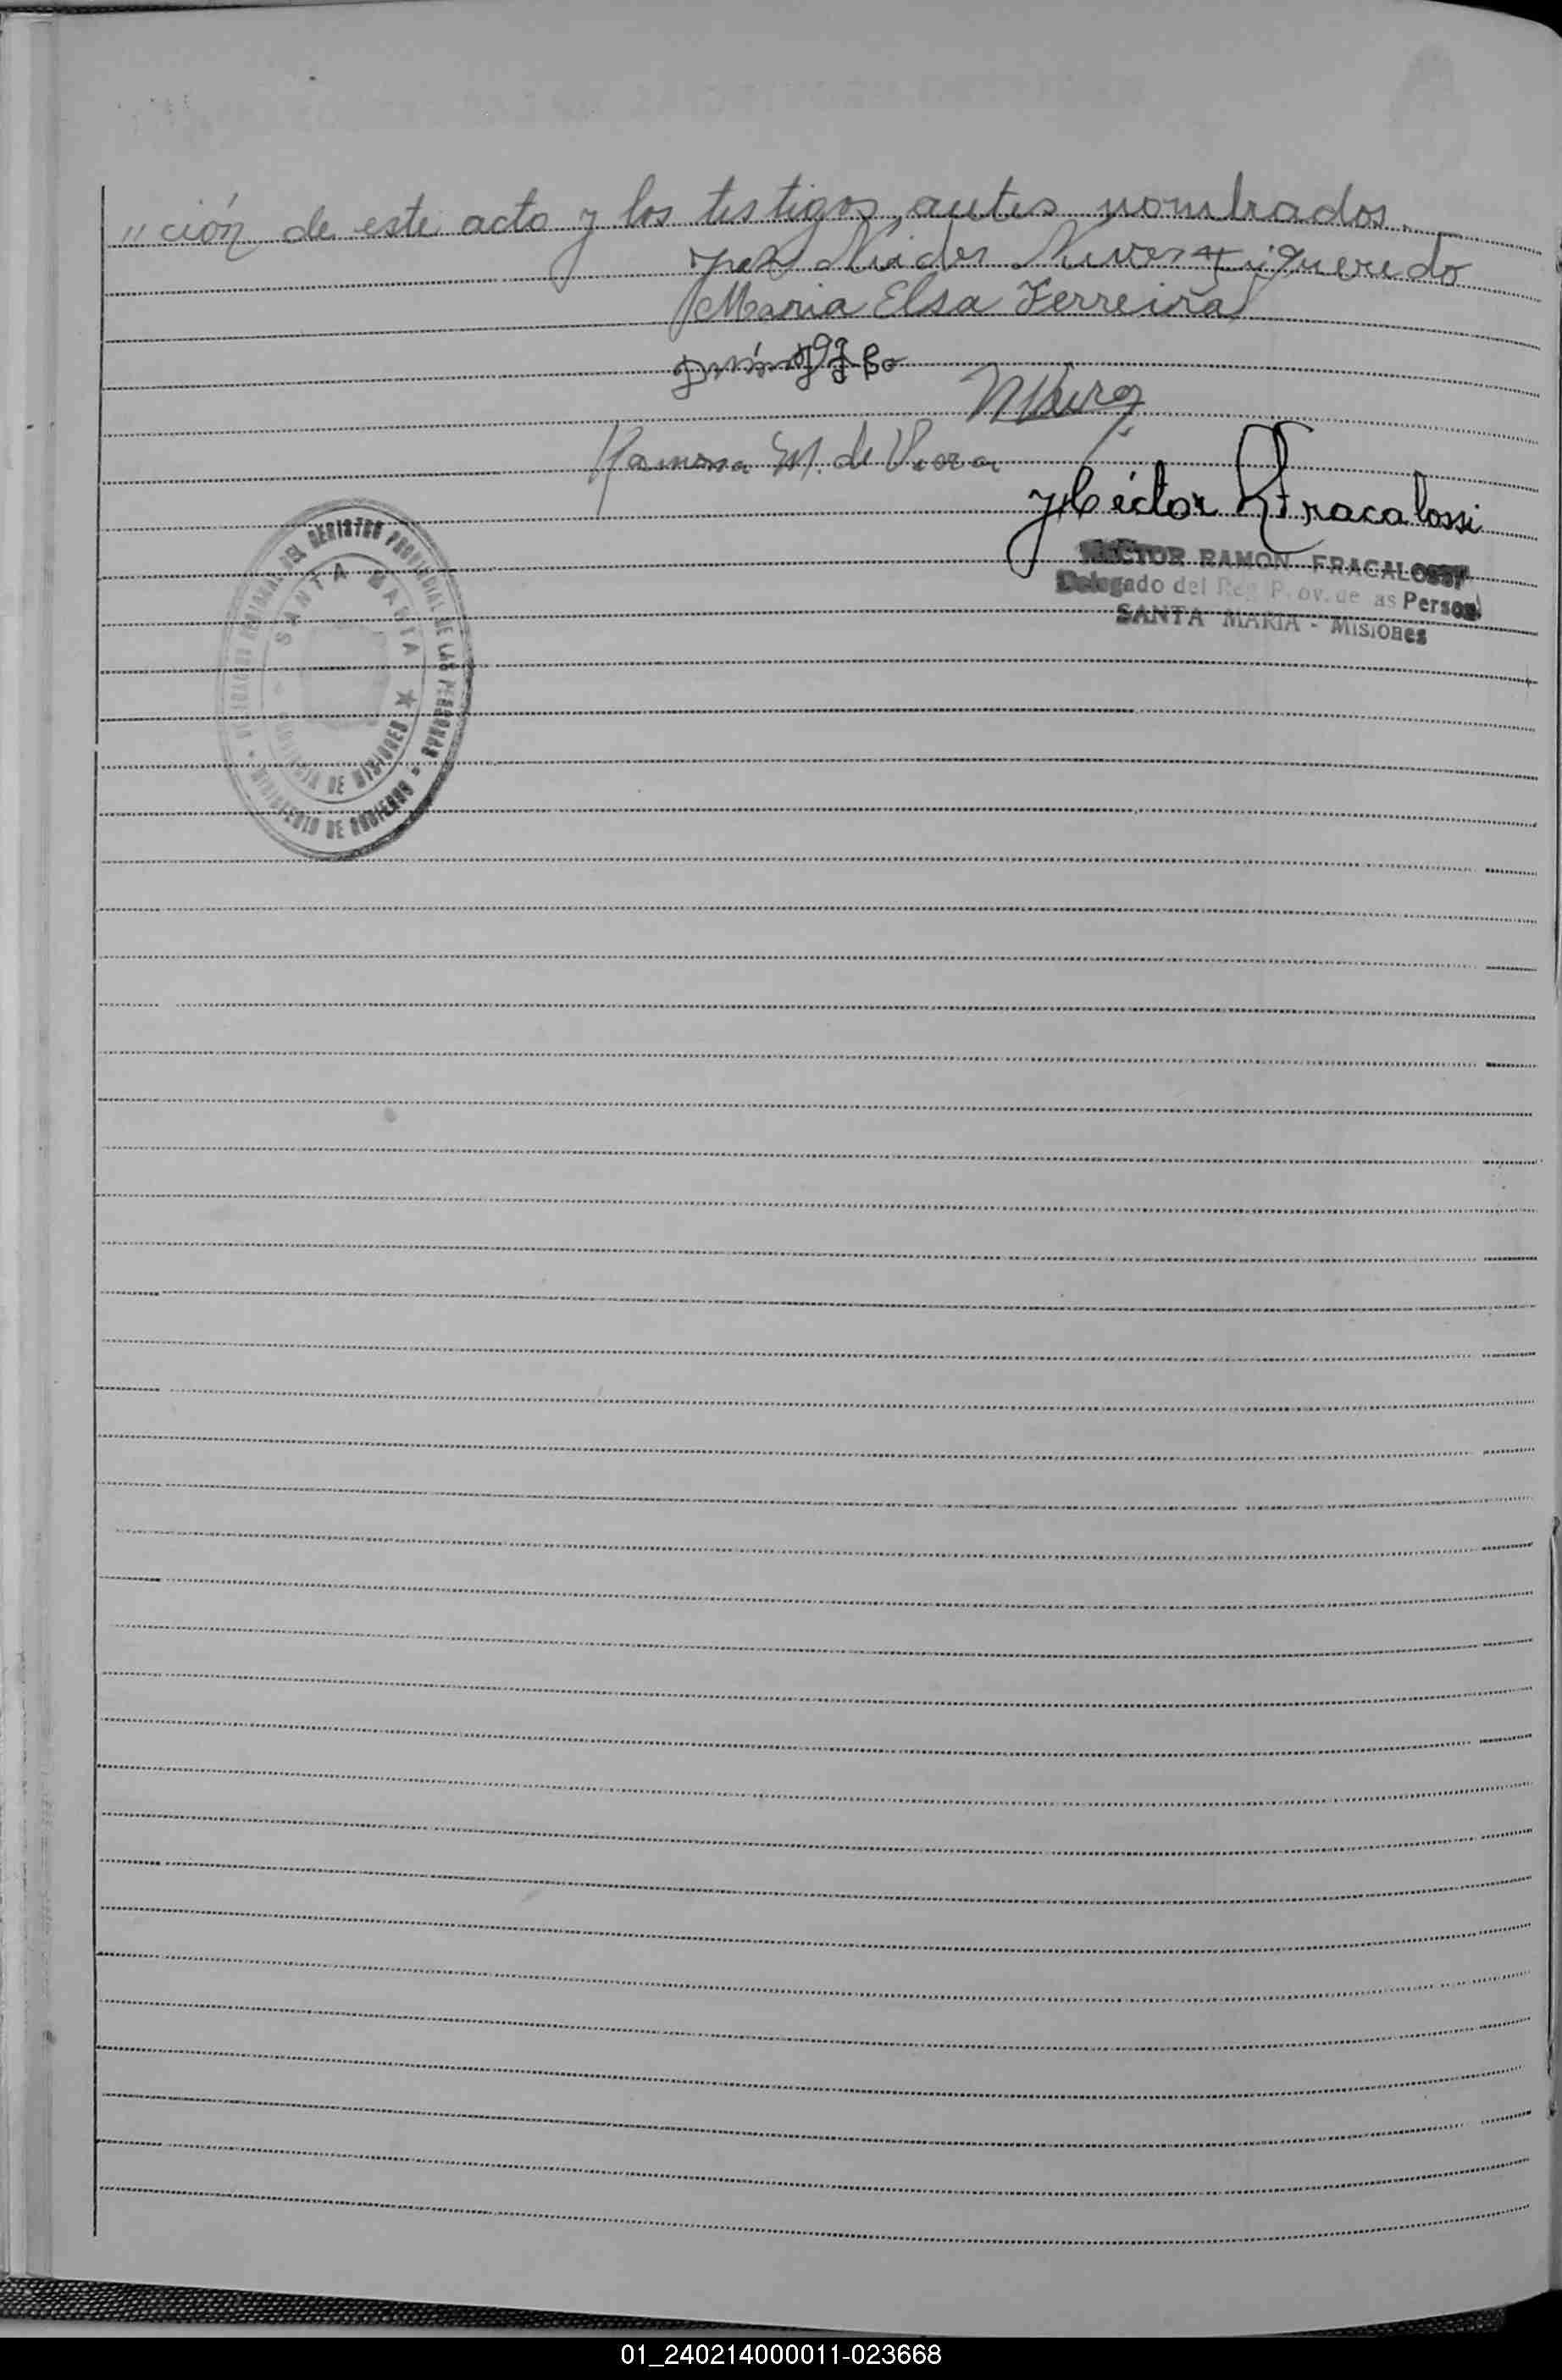 "ción de este acto y los testigos, antes nombrados.
Nieves Figueredo
Maria Elsa Ferreira
Ramona M. de Viera
Héctor R Fracalossi
HECTOR RAMON FRACALOSSI
Delegado del Reg. Prov. de las Personas
SANTA MARIA - Misiones
DEL REGISTRO PROVINCIAL DE LAS PERSONAS
SANTA MARIA
PROVINCIA DE MISIONES
MINISTERIO DE GOBIERNO
01_240214000011-023668